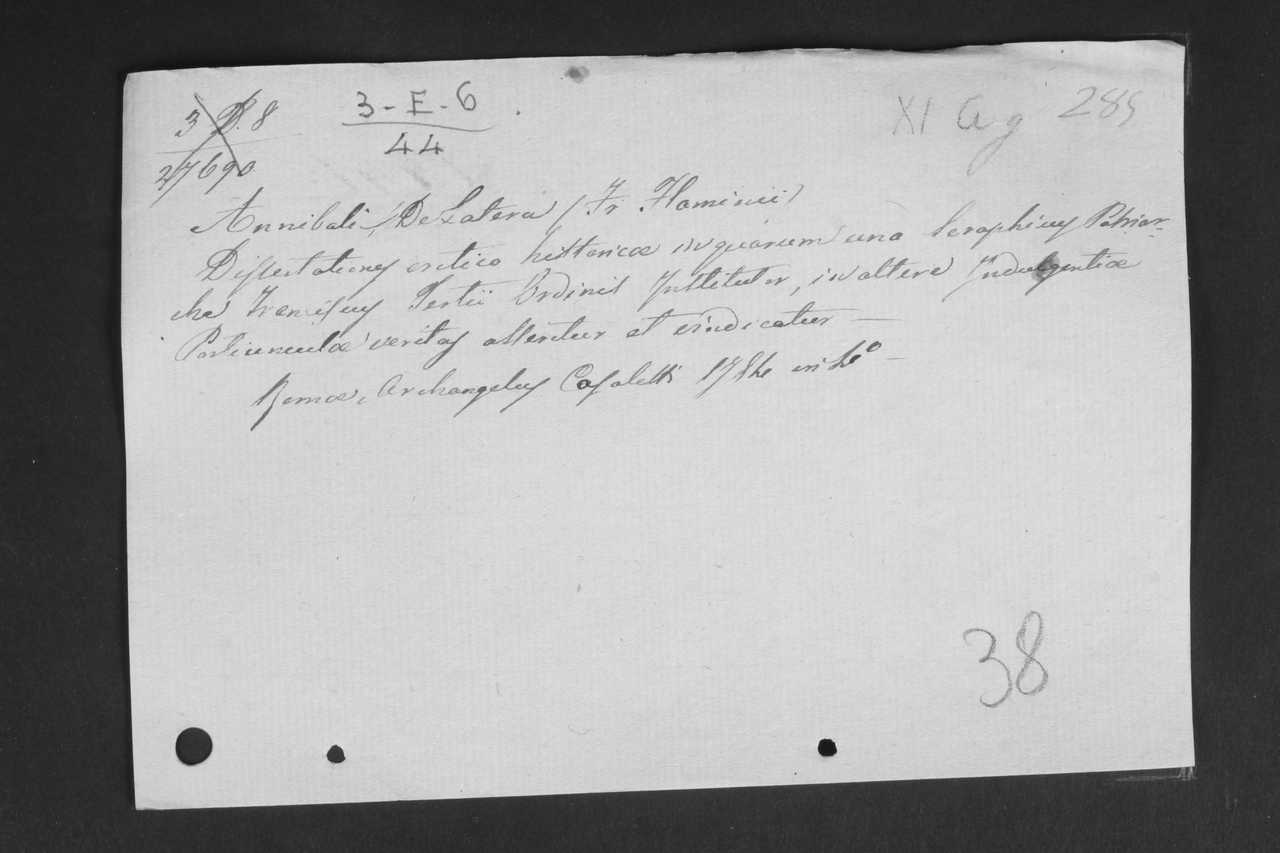 3 B. 8
27690
3 - E - 6
44
XI Ag 285
Annibali, De Latera (Fr. Flaminii)
Dissertationes critico historicæ in quarum una Seraphicus Patriar-
cha Franciscus Tertii Ordinis Institutor, in altera Indulgentiæ
Portiunculæ veritas asseritur et vindicatur —
Romæ, Archangelus Casaletti 1784 in 4º —
38